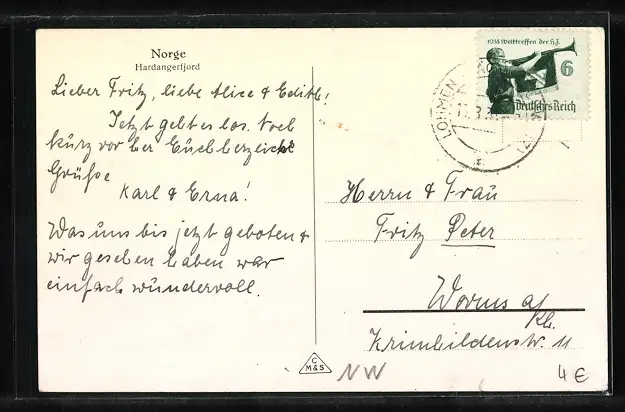 Norge
Hardangerfjord
Lieber Fritz, liebe Alice & Edith!
Jetzt geht es los. Noch
kurz vor her Euch herzliche
Grüße
Karl & Erna!
Was uns bis jetzt geboten &
wir gesehen haben war
einfach wundervoll.
1935 Welttreffen der H.J.
6
Deutsches Reich
LOHMEN
Herrn & Frau
Fritz Peter
Worms a/Rh.
Krimhildenstr. 11
C
M&S
NW
4 €